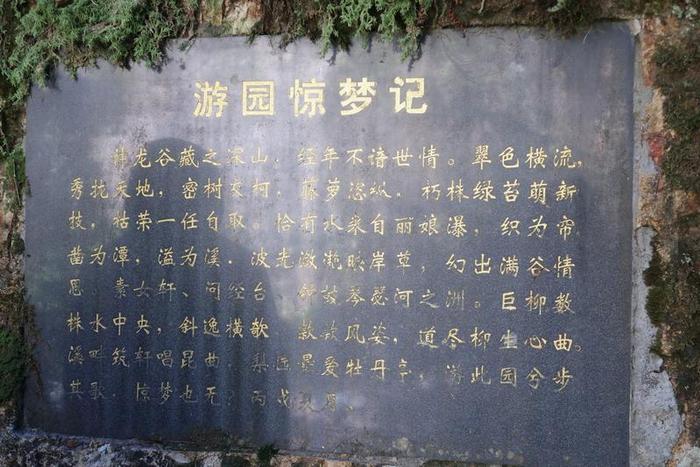 游园惊梦记
神龙谷藏之深山，经年不谙世情。翠色横流，
秀抚天地，密树交柯，藤萝恣纵，朽株绿苔萌新
技，枯荣一任自取。恰有水来自丽娘瀑，织为帘
凿为潭，溢为溪。波光潋滟映岸草，幻出满谷情
思 素女轩、问经台 琴瑟河之洲。巨柳数
株水中央，斜逸横歌 款款风姿，道尽柳生心曲。
溪畔筑轩唱昆曲，梨园 爱牡丹亭，游此园兮步
其歌，惊梦也无？丙戌夏